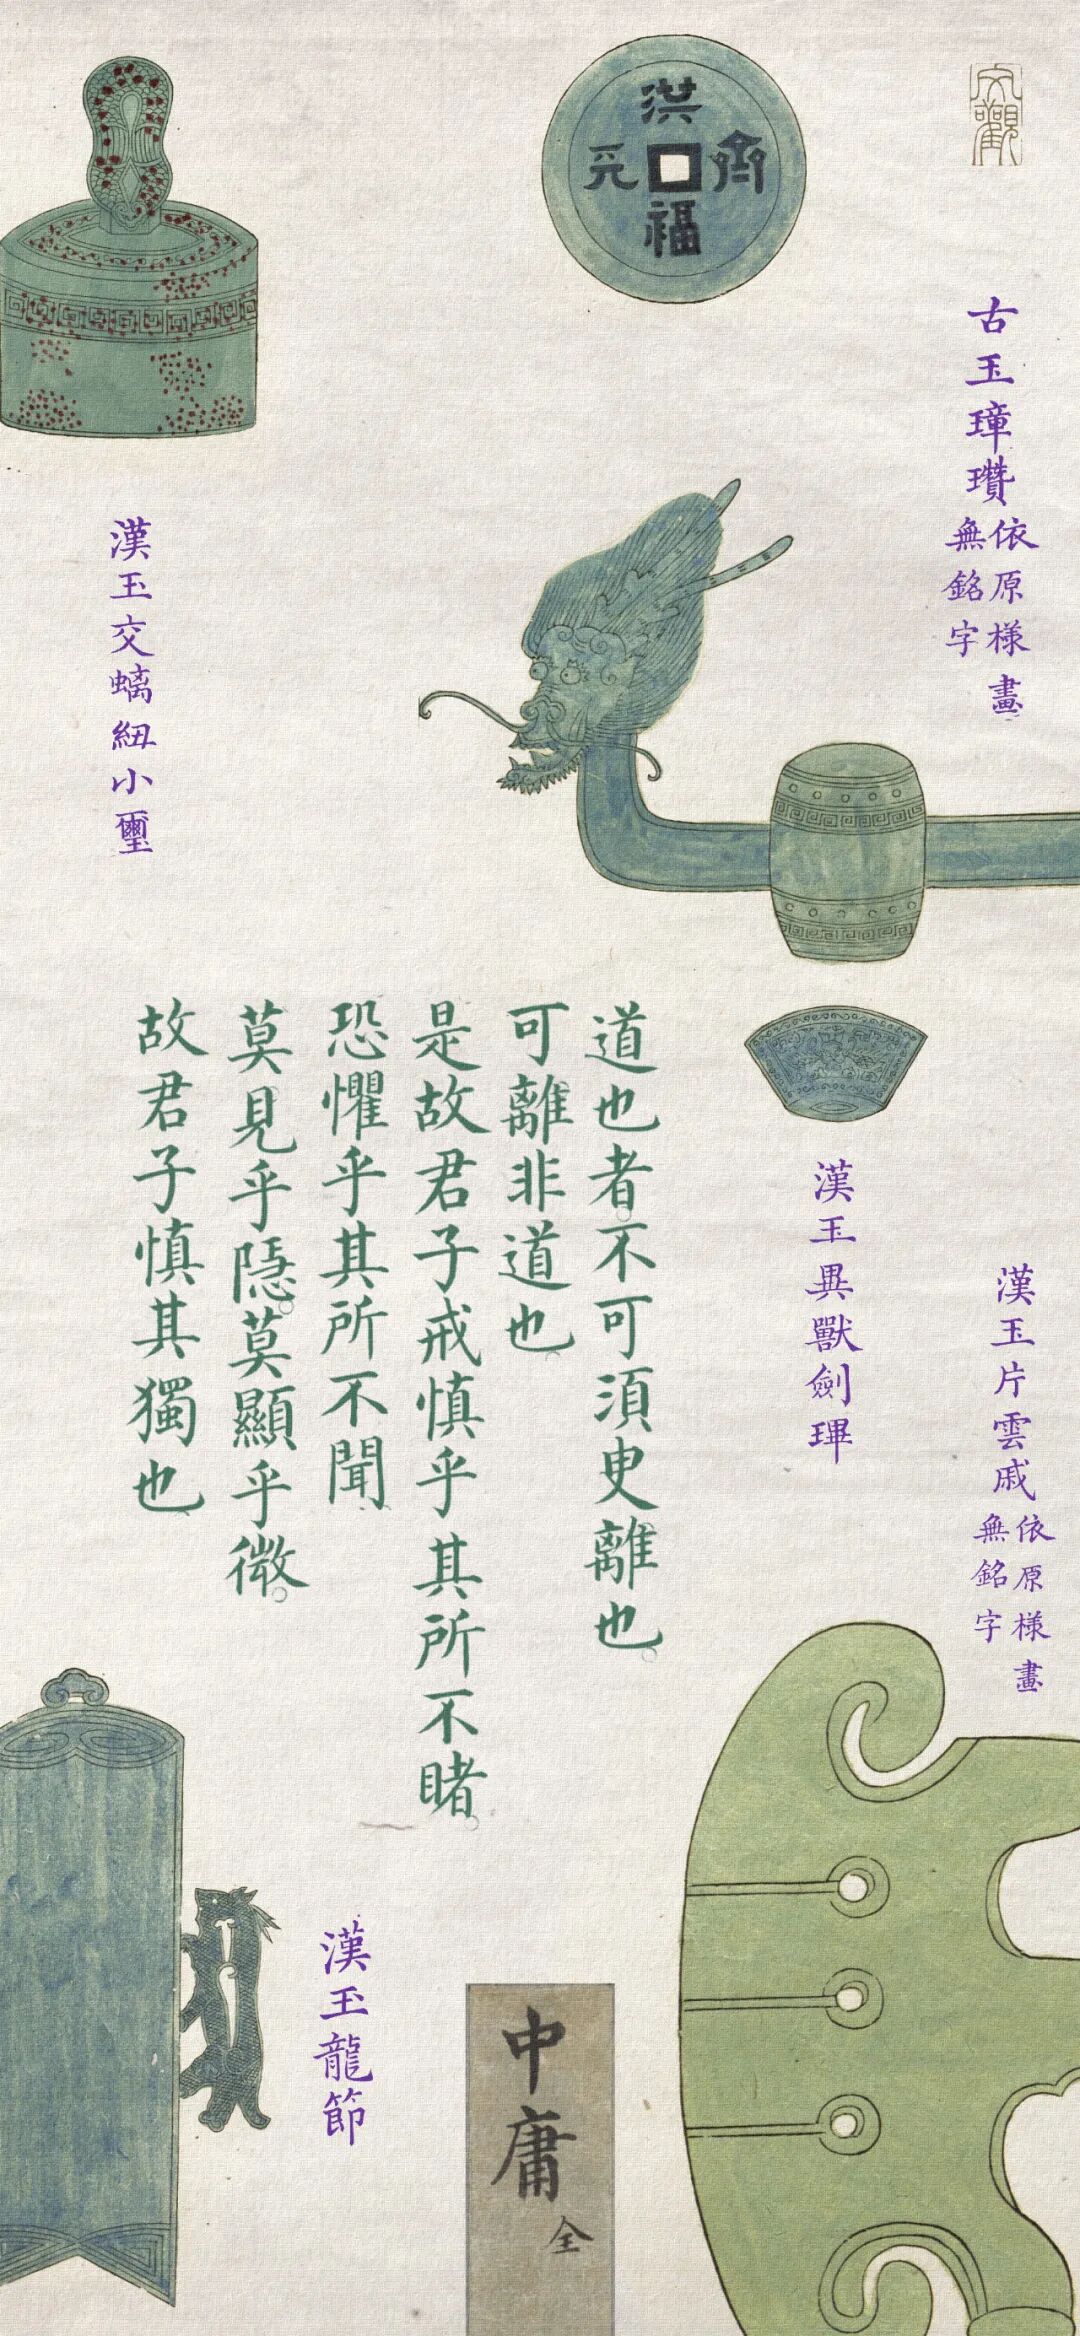 洪福齊元
文觀
古玉璋瓚依原樣畫
無銘字
漢玉交螭紐小璽
道也者不可須臾離也
可離非道也
是故君子戒慎乎其所不睹
恐懼乎其所不聞
莫見乎隱莫顯乎微
故君子慎其獨也
漢玉異獸劍琕
漢玉片雲戚依原樣畫
無銘字
漢玉龍節
中庸全